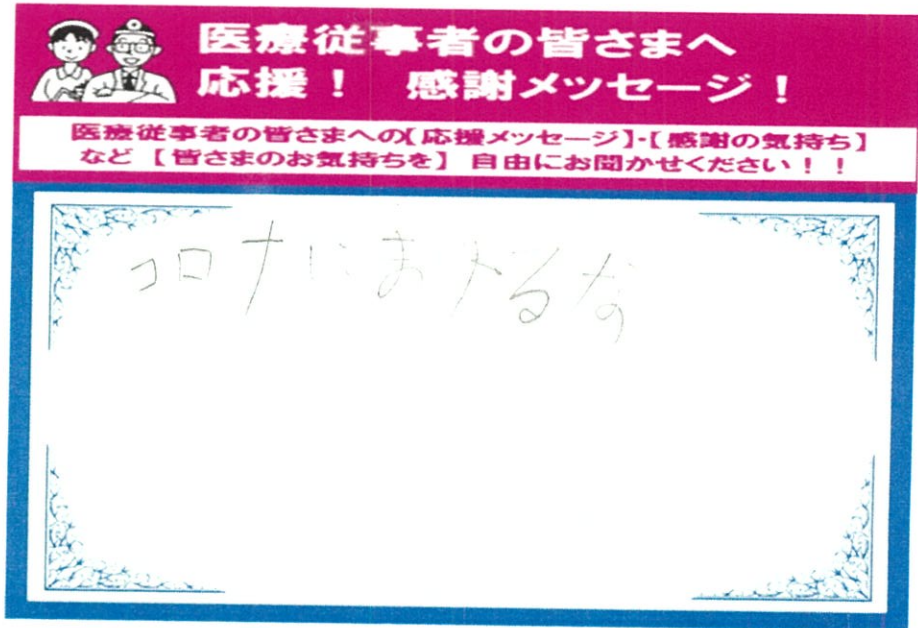 医療従事者の皆さまへ
応援！　感謝メッセージ！
医療従事者の皆さまへの【応援メッセージ】・【感謝の気持ち】
など【皆さまのお気持ちを】自由にお聞かせください！！
コロナにまけるな